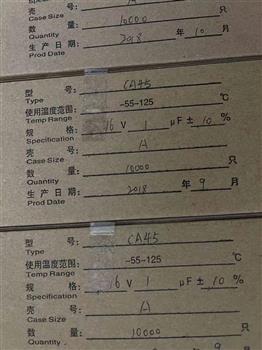 壳 号: A
Case Size
数 量: 10000 只
Quantity
生产日期: 2018 年 10 月
Prod Date
型 号: CA45
Type
使用温度范围: -55-125 ℃
Temp Range
规 格: 16 V 1 μF ± 10 %
Specification
壳 号: A
Case Size
数 量: 10000 只
Quantity
生产日期: 2018 年 9 月
Prod Date
型 号: CA45
Type
使用温度范围: -55-125 ℃
Temp Range
规 格: 16 V 1 μF ± 10 %
Specification
壳 号: A
Case Size
数 量: 10000 只
Quantity
年 9